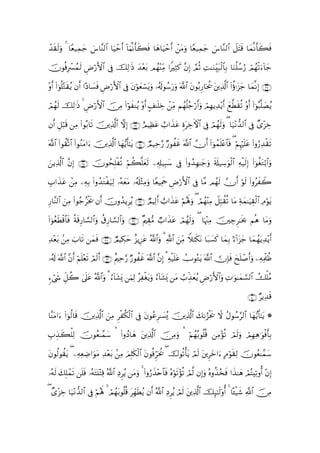 فَكَأَنَّمَا قَتَلَ ٱلنَّاسَ جَمِيعًا وَمَنْ أَحْيَاهَا فَكَأَنَّمَآ أَحْيَا ٱلنَّاسَ جَمِيعًا ۚ وَلَقَدْ
جَآءَتْهُمْ رُسُلُنَا بِٱلْبَيِّنَٰتِ ثُمَّ إِنَّ كَثِيرًا مِّنْهُم بَعْدَ ذَٰلِكَ فِى ٱلْأَرْضِ لَمُسْرِفُونَ
﴿٣٢﴾ إِنَّمَا جَزَٰٓؤُا۟ ٱلَّذِينَ يُحَارِبُونَ ٱللَّهَ وَرَسُولَهُۥ وَيَسْعَوْنَ فِى ٱلْأَرْضِ فَسَادًا أَن يُقَتَّلُوٓا۟ أَوْ
يُصَلَّبُوٓا۟ أَوْ تُقَطَّعَ أَيْدِيهِمْ وَأَرْجُلُهُم مِّنْ خِلَٰفٍ أَوْ يُنفَوْا۟ مِنَ ٱلْأَرْضِ ۚ ذَٰلِكَ لَهُمْ
خِزْىٌ فِى ٱلدُّنْيَا ۖ وَلَهُمْ فِى ٱلْءَاخِرَةِ عَذَابٌ عَظِيمٌ ﴿٣٣﴾ إِلَّا ٱلَّذِينَ تَابُوا۟ مِن قَبْلِ أَن
تَقْدِرُوا۟ عَلَيْهِمْ ۖ فَٱعْلَمُوٓا۟ أَنَّ ٱللَّهَ غَفُورٌ رَّحِيمٌ ﴿٣٤﴾ يَٰٓأَيُّهَا ٱلَّذِينَ ءَامَنُوا۟ ٱتَّقُوا۟ ٱللَّهَ
وَٱبْتَغُوٓا۟ إِلَيْهِ ٱلْوَسِيلَةَ وَجَٰهِدُوا۟ فِى سَبِيلِهِۦ لَعَلَّكُمْ تُفْلِحُونَ ﴿٣٥﴾ إِنَّ ٱلَّذِينَ
كَفَرُوا۟ لَوْ أَنَّ لَهُم مَّا فِى ٱلْأَرْضِ جَمِيعًا وَمِثْلَهُۥ مَعَهُۥ لِيَفْتَدُوا۟ بِهِۦ مِنْ عَذَابِ
يَوْمِ ٱلْقِيَٰمَةِ مَا تُقُبِّلَ مِنْهُمْ ۖ وَلَهُمْ عَذَابٌ أَلِيمٌ ﴿٣٦﴾ يُرِيدُونَ أَن يَخْرُجُوا۟ مِنَ ٱلنَّارِ
وَمَا هُم بِخَٰرِجِينَ مِنْهَا ۖ وَلَهُمْ عَذَابٌ مُّقِيمٌ ﴿٣٧﴾ وَٱلسَّارِقُ وَٱلسَّارِقَةُ فَٱقْطَعُوٓا۟
أَيْدِيَهُمَا جَزَآءًۢ بِمَا كَسَبَا نَكَٰلًا مِّنَ ٱللَّهِ ۗ وَٱللَّهُ عَزِيزٌ حَكِيمٌ ﴿٣٨﴾ فَمَن تَابَ مِنۢ بَعْدِ
ظُلْمِهِۦ وَأَصْلَحَ فَإِنَّ ٱللَّهَ يَتُوبُ عَلَيْهِ ۗ إِنَّ ٱللَّهَ غَفُورٌ رَّحِيمٌ ﴿٣٩﴾ أَلَمْ تَعْلَمْ أَنَّ ٱللَّهَ لَهُۥ
مُلْكُ ٱلسَّمَٰوَٰتِ وَٱلْأَرْضِ يُعَذِّبُ مَن يَشَآءُ وَيَغْفِرُ لِمَن يَشَآءُ ۗ وَٱللَّهُ عَلَىٰ كُلِّ شَىْءٍ
قَدِيرٌ ﴿٤٠﴾
۞ يَٰٓأَيُّهَا ٱلرَّسُولُ لَا يَحْزُنكَ ٱلَّذِينَ يُسَٰرِعُونَ فِى ٱلْكُفْرِ مِنَ ٱلَّذِينَ قَالُوٓا۟ ءَامَنَّا
بِأَفْوَٰهِهِمْ وَلَمْ تُؤْمِن قُلُوبُهُمْ ۛ وَمِنَ ٱلَّذِينَ هَادُوا۟ ۛ سَمَّٰعُونَ لِلْكَذِبِ
سَمَّٰعُونَ لِقَوْمٍ ءَاخَرِينَ لَمْ يَأْتُوكَ ۖ يُحَرِّفُونَ ٱلْكَلِمَ مِنۢ بَعْدِ مَوَاضِعِهِۦ ۖ يَقُولُونَ
إِنْ أُوتِيتُمْ هَٰذَا فَخُذُوهُ وَإِن لَّمْ تُؤْتَوْهُ فَٱحْذَرُوا۟ ۚ وَمَن يُرِدِ ٱللَّهُ فِتْنَتَهُۥ فَلَن تَمْلِكَ لَهُۥ
مِنَ ٱللَّهِ شَيْـًٔا ۚ أُو۟لَٰٓئِكَ ٱلَّذِينَ لَمْ يُرِدِ ٱللَّهُ أَن يُطَهِّرَ قُلُوبَهُمْ ۚ لَهُمْ فِى ٱلدُّنْيَا خِزْىٌ ۖ